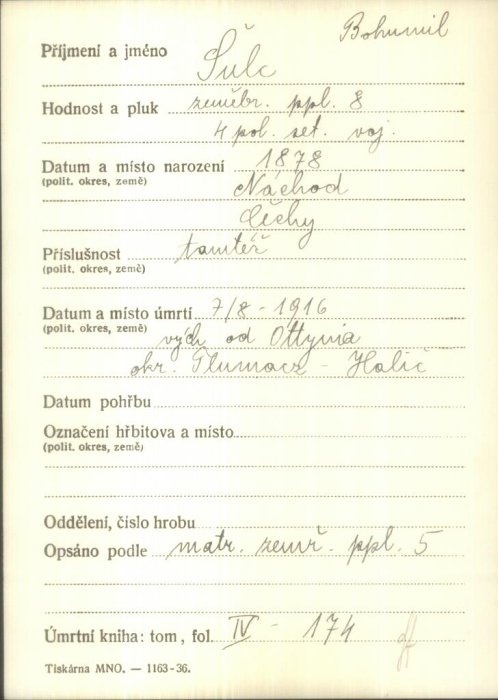 Bohumil
Příjmení a jméno Šulc
Hodnost a pluk zeměbr. ppl. 8
4 pol. set. voj.
Datum a místo narození 1878
(polit. okres, země) Náchod
Čechy
Příslušnost tamtéž
(polit. okres, země)
Datum a místo úmrtí 7/8 - 1916
(polit. okres, země) vých od Ottynia
okr. Tlumacz - Halič
Datum pohřbu
Označení hřbitova a místo
(polit. okres, země)
Oddělení, číslo hrobu
Opsáno podle matr. zemř. ppl. 5
Úmrtní kniha: tom, fol. IV - 174
Tiskárna MNO. — 1163-36.